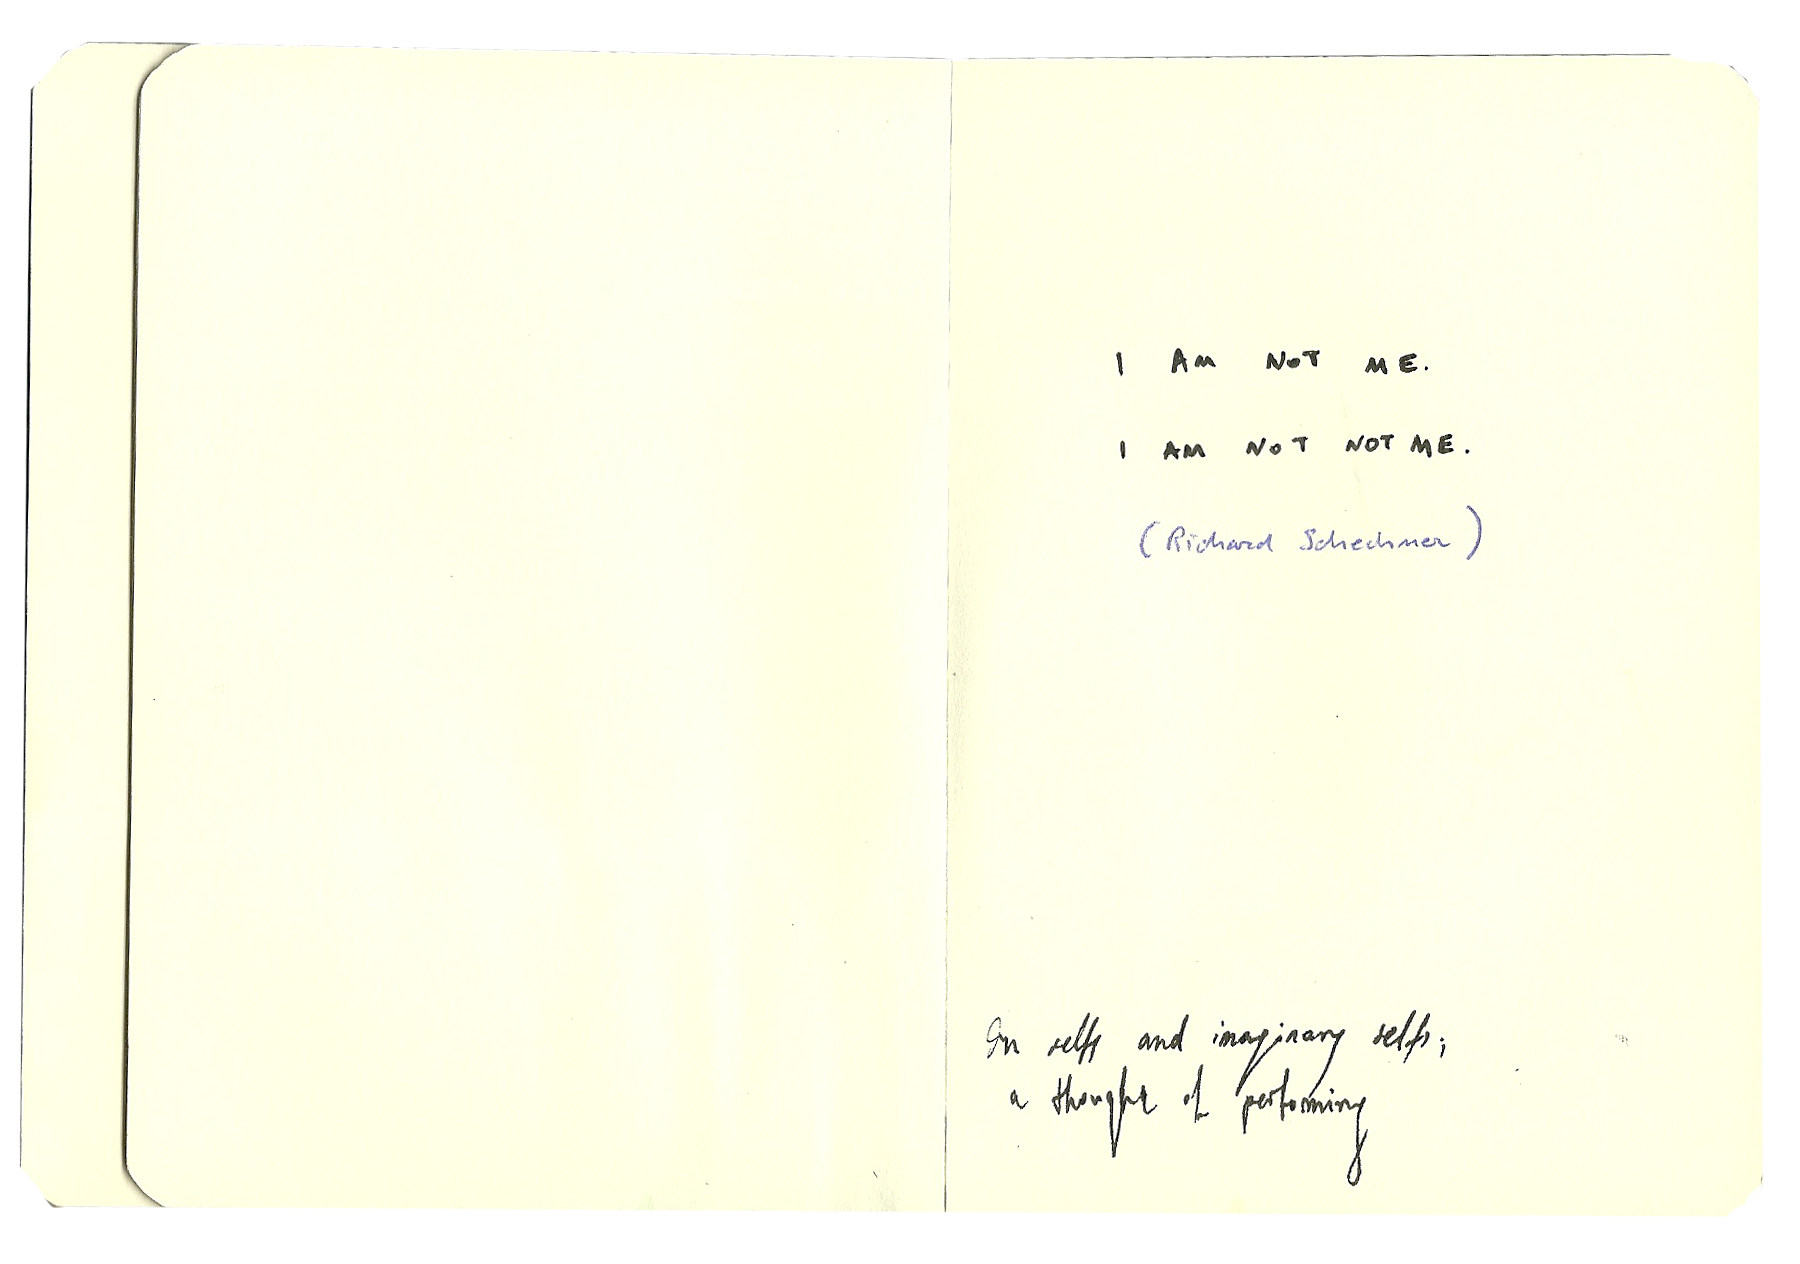 I AM NOT ME.
I AM NOT NOT ME.
(Richard Schechner)
On selfs and imaginary selfs;
a thought of performing